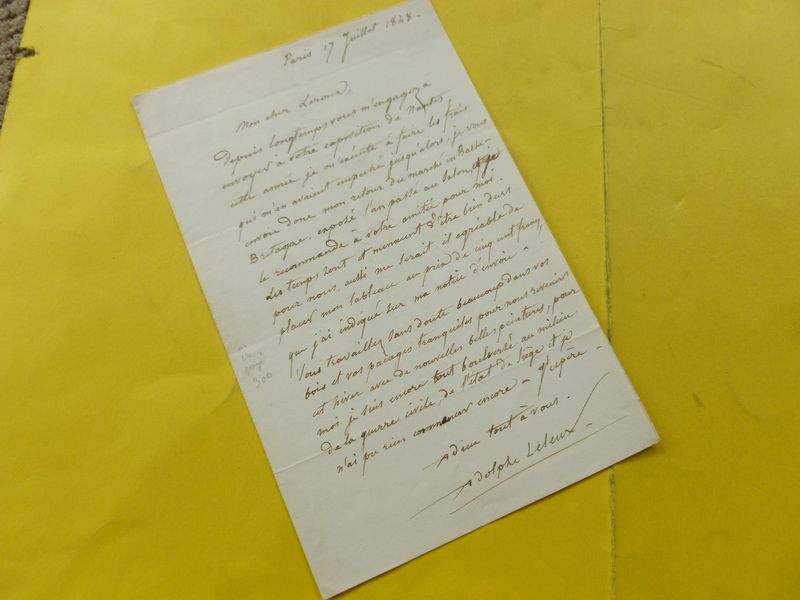 Paris 17 Juillet 1848.
Mon cher Leroux,
Depuis longtemps vous m'engagez à
envoyer à votre exposition de Nantes,
cette année je m'exécute à faire les frais
qui m'en avaient empêché jusqu'alors, je vous
envoie donc mon retour du marché en Basse-
Bretagne, exposé l'an passé au salon, et je
le recommande à votre amitié pour moi.
Les temps sont et menacent d'être bien durs
pour nous, aussi me serait-il agréable de
placer mon tableau au prix de cinq cent francs,
que j'ai indiqué sur ma notice d'envoie -
Vous travaillez sans doute beaucoup dans vos
bois et vos pacages tranquiles pour nous revenir
cet hiver avec de nouvelles belles peintures, pour
moi je suis encore tout boulversé au milieu
de la guerre civile, de l'état de siège et je
n'ai pu rien commencer encore - J'espère -
Adieu tout à vous.
Adolphe Leleux -
300